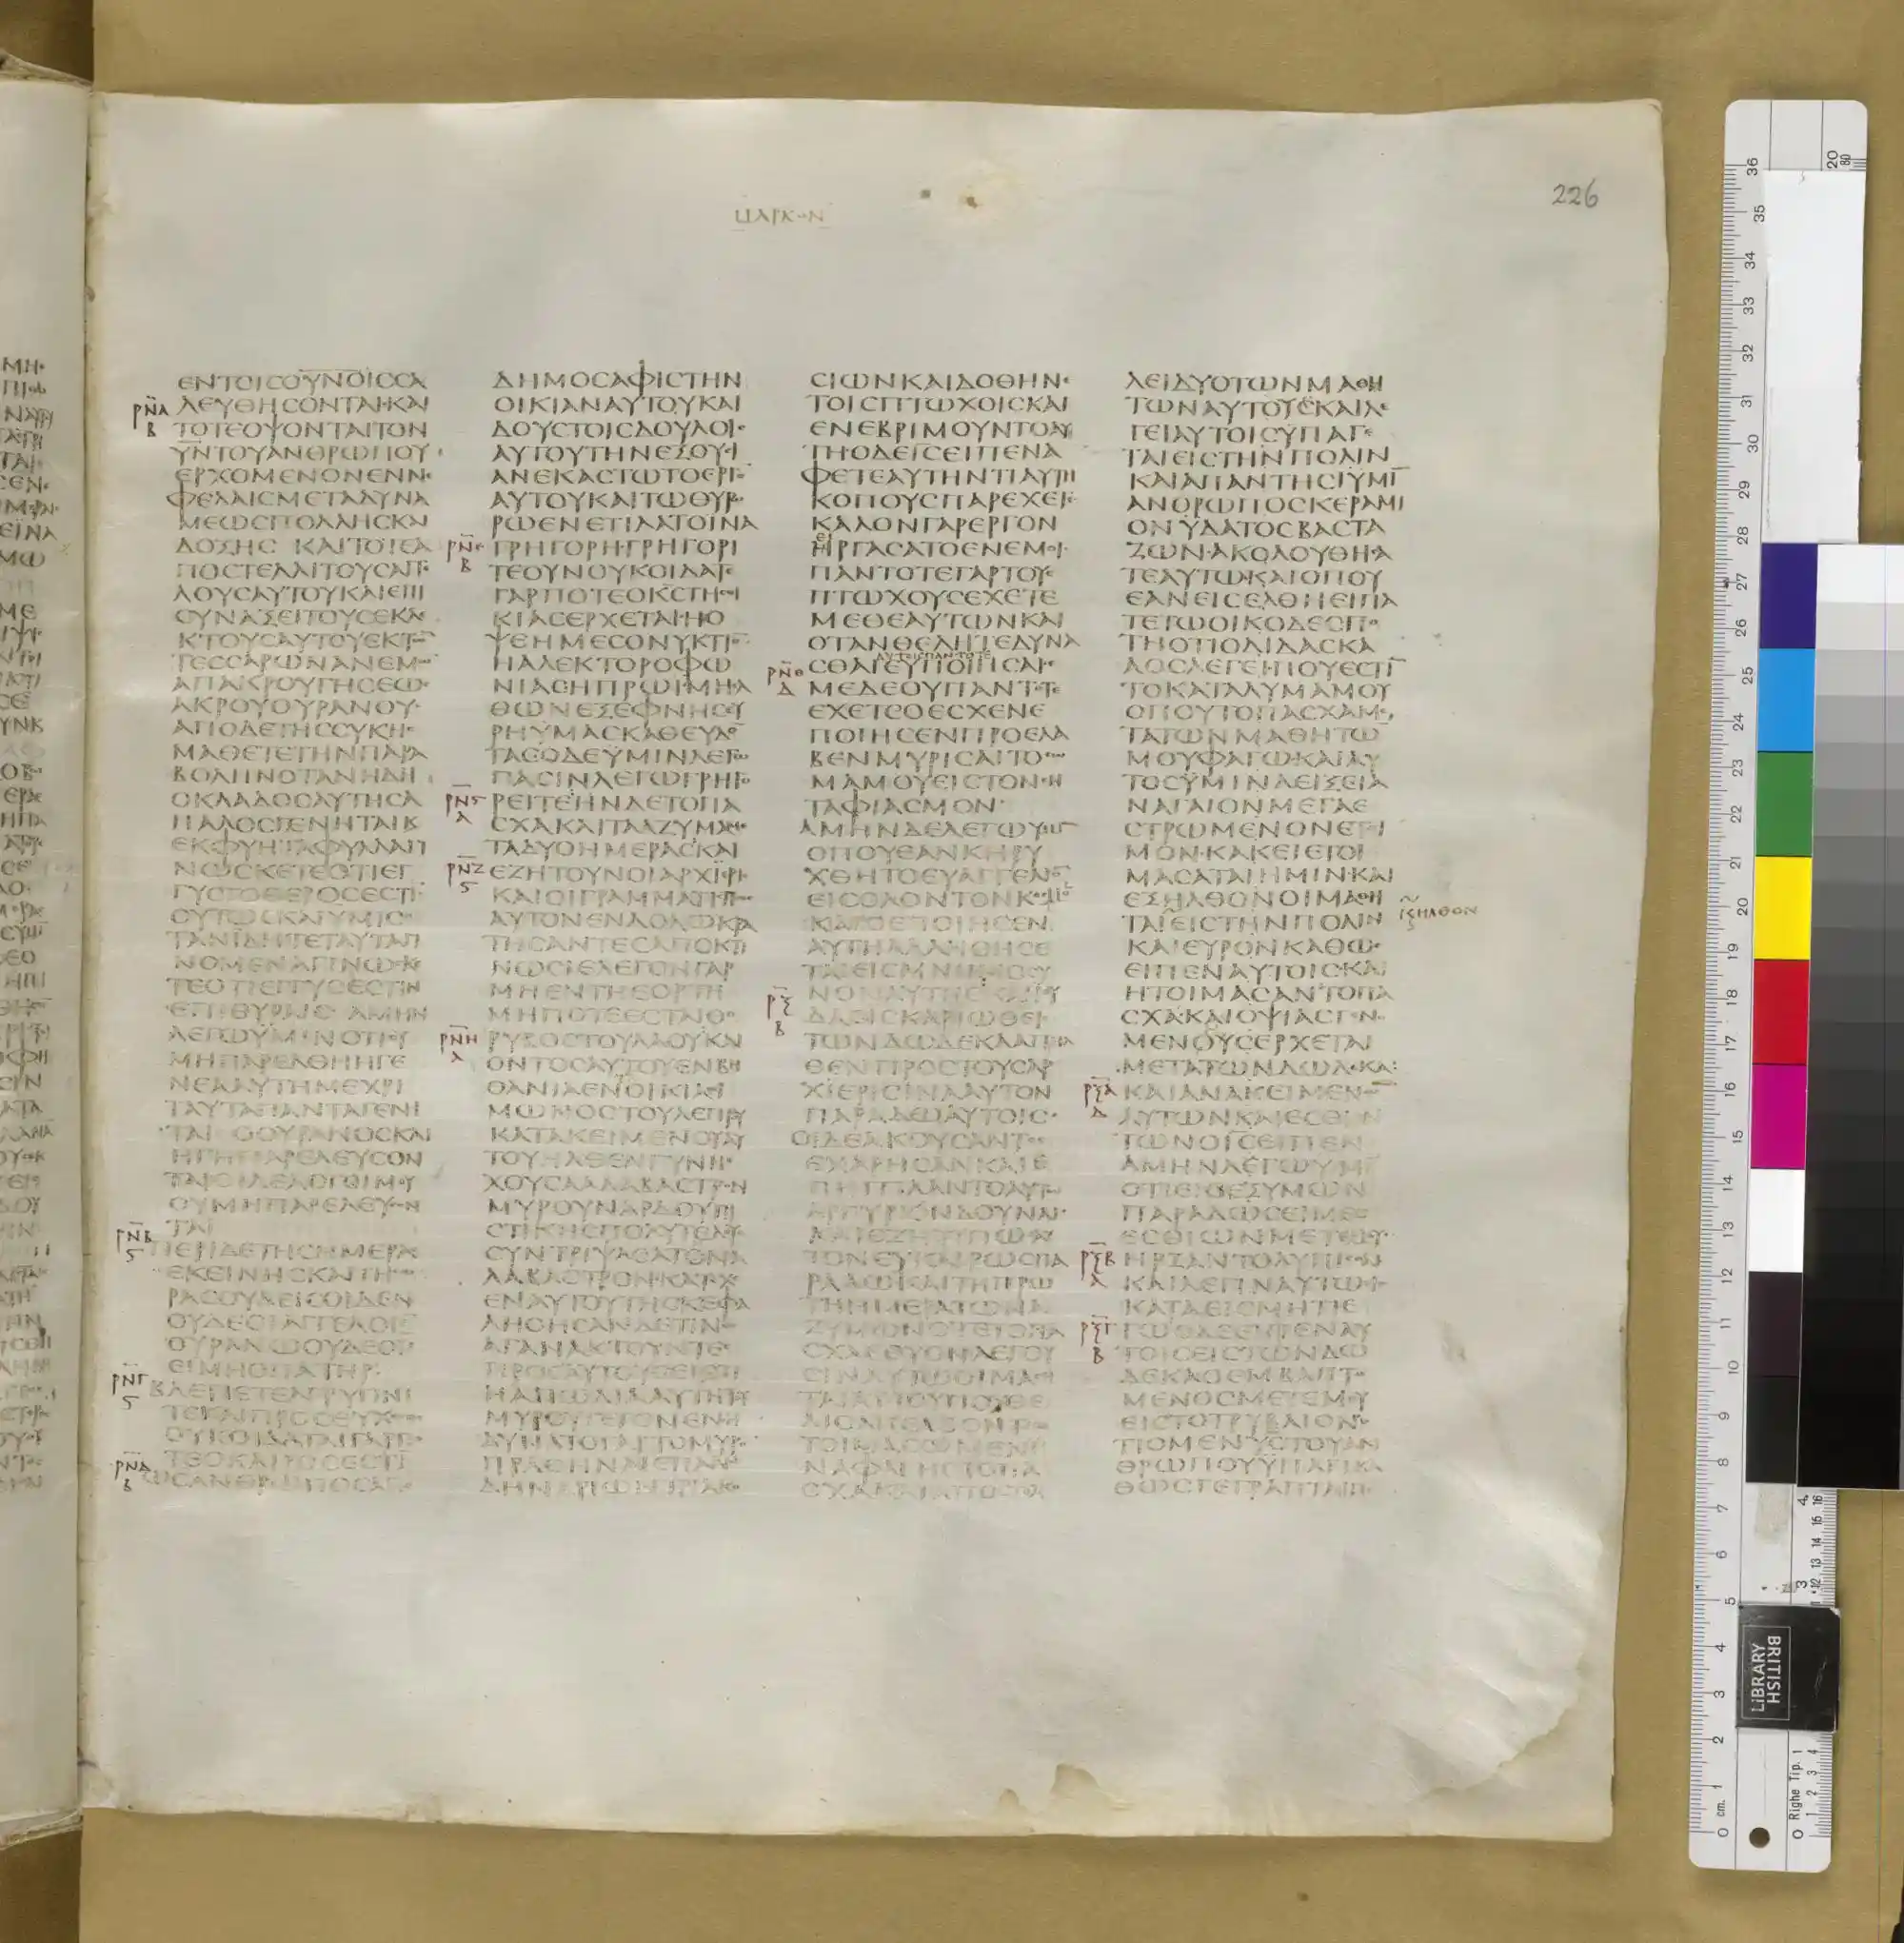 ΜΑΡΚΟΝ
226
ΕΝΤΟΙϹΟΥΝΟΙϹϹΑ
ΛΕΥΘΗϹΟΝΤΑΙ·ΚΑΙ
ΤΟΤΕΟΨΟΝΤΑΙΤΟΝ
ΥΝΤΟΥΑΝΘΡΩΠΟΥ
ΕΡΧΟΜΕΝΟΝΕΝΝΕ
ΦΕΛΑΙϹΜΕΤΑΔΥΝΑ
ΜΕΩϹΠΟΛΛΗϹΚΑΙ
ΔΟΞΗϹ ΚΑΙΤΟΤΕΑ
ΠΟϹΤΕΛΛΙΤΟΥϹΑΓΓΕ
ΛΟΥϹΑΥΤΟΥΚΑΙΕΠΙ
ϹΥΝΑΞΕΙΤΟΥϹΕΚΛΕ
ΚΤΟΥϹΑΥΤΟΥΕΚΤΩ
ΤΕϹϹΑΡΩΝΑΝΕΜΩ
ΑΠΑΚΡΟΥΓΗϹΕΩϹ
ΑΚΡΟΥΟΥΡΑΝΟΥ·
ΑΠΟΔΕΤΗϹϹΥΚΗϹ
ΜΑΘΕΤΕΤΗΝΠΑΡΑ
ΒΟΛΗΝΟΤΑΝΗΔΗ
ΟΚΛΑΔΟϹΑΥΤΗϹΑ
ΠΑΛΟϹΓΕΝΗΤΑΙΚ
ΕΚΦΥΗΤΑΦΥΛΛΑΓΙ
ΝΩϹΚΕΤΕΟΤΙΕΓ
ΓΥϹΤΟΘΕΡΟϹΕϹΤΙ
ΟΥΤΩϹΚΑΙΥΜΙϹ
ΤΑΝΙΔΗΤΕΤΑΥΤΑΓΙ
ΝΟΜΕΝΑΓΙΝΩϹΚΕ
ΤΕΟΤΙΕΓΓΥϹΕϹΤΙΝ
ΕΠΙΘΥΡΑΙϹ ΑΜΗΝ
ΛΕΓΩΫΜΙΝΟΤΙΟΥ
ΜΗΠΑΡΕΛΘΗΗΓΕ
ΝΕΑΑΥΤΗΜΕΧΡΙ
ΤΑΥΤΑΠΑΝΤΑΓΕΝΗ
ΤΑΙ ΟΟΥΡΑΝΟϹΚΑΙ
ΗΓΗΠΑΡΕΛΕΥϹΟΝ
ΤΑΙΟΙΔΕΛΟΓΟΙΜΟΥ
ΟΥΜΗΠΑΡΕΛΕΥϹΟΝ
ΤΑΙ
ΠΕΡΙΔΕΤΗϹΗΜΕΡΑϹ
ΕΚΕΙΝΗϹΚΑΙΤΗϹΩ
ΡΑϹΟΥΔΕΙϹΟΙΔΕΝ
ΟΥΔΕΟΙΑΓΓΕΛΟΙΕ
ΟΥΡΑΝΩΟΥΔΕΟΥϹ
ΕΙΜΗΟΠΑΤΗΡ
ΒΛΕΠΕΤΕΑΓΡΥΠΝΙ
ΤΕΚΑΙΠΡΟϹΕΥΧΕϹΘΕ
ΟΥΚΟΙΔΑΤΑΙΓΑΡΠΟ
ΤΕΟΚΑΙΡΟϹΕϹΤΙ
ΩϹΑΝΘΡΩΠΟϹΑΠΟ
ΡΝΑ
Β
ΡΝΒ
Ϛ
ΡΝΓ
Ϛ
ΡΝΔ
Β
ΔΗΜΟϹΑΦΙϹΤΗΝ
ΟΙΚΙΑΝΑΥΤΟΥΚΑΙ
ΔΟΥϹΤΟΙϹΔΟΥΛΟΙϹ
ΑΥΤΟΥΤΗΝΕΞΟΥϹΙ
ΑΝΕΚΑϹΤΩΤΟΕΡΓΟ
ΑΥΤΟΥΚΑΙΤΩΘΥΡΩ
ΡΩΕΝΕΤΙΛΑΤΟΙΝΑ
ΓΡΗΓΟΡΗ·ΓΡΗΓΟΡΙ
ΤΕΟΥΝΟΥΚΟΙΔΑΤΕ
ΓΑΡΠΟΤΕΟΚϹΤΗϹΟΙ
ΚΙΑϹΕΡΧΕΤΑΙΗΟ
ΨΕΗΜΕϹΟΝΥΚΤΙΟ
ΗΑΛΕΚΤΟΡΟΦΩ
ΝΙΑϹΗΠΡΩΙΜΗΕΛ
ΘΩΝΕΞΕΦΝΗϹΕΥ
ΡΗΫΜΑϹΚΑΘΕΥΔΟ
ΤΑϹΟΔΕΫΜΙΝΛΕΓΩ
ΠΑϹΙΝΛΕΓΩΓΡΗΓΟ
ΡΕΙΤΕΗΝΔΕΤΟΠΑ
ϹΧΑΚΑΙΤΑΑΖΥΜΑΜΕ
ΤΑΔΥΟΗΜΕΡΑϹΚΑΙ
ΕΖΗΤΟΥΝΟΙΑΡΧΙΕΡΙϹ
ΚΑΙΟΙΓΡΑΜΜΑΤΙϹΠΩϹ
ΑΥΤΟΝΕΝΔΟΛΩΚΡΑ
ΤΗϹΑΝΤΕϹΑΠΟΚΤΙ
ΝΩϹΙΕΛΕΓΟΝΓΑΡ
ΜΗΕΝΤΗΕΟΡΤΗ
ΜΗΠΟΤΕΕϹΤΑΙΘΟ
ΡΥΒΟϹΤΟΥΛΑΟΥΚΑΙ
ΟΝΤΟϹΑΥΤΟΥΕΝΒΗ
ΘΑΝΙΑΕΝΟΙΚΙΑϹΙ
ΜΩΝΟϹΤΟΥΛΕΠΡΟΥ
ΚΑΤΑΚΕΙΜΕΝΟΥΑΥ
ΤΟΥΗΛΘΕΝΓΥΝΗΕ
ΧΟΥϹΑΑΛΑΒΑϹΤΡΟΝ
ΜΥΡΟΥΝΑΡΔΟΥΠΙ
ϹΤΙΚΗϹΠΟΛΥΤΕΛΟΥϹ
ϹΥΝΤΡΙΨΑϹΑΤΟΝΑ
ΛΑΒΑϹΤΡΟΝΚΑΤΕΧΕ
ΕΝΑΥΤΟΥΤΗϹΚΕΦΑ
ΛΗϹΗϹΑΝΔΕΤΙΝΕϹ
ΑΓΑΝΑΚΤΟΥΝΤΕϹ
ΠΡΟϹΑΥΤΟΥϹΕΙϹΤΙ
ΗΑΠΩΛΙΑΑΥΤΗΤΟΥ
ΜΥΡΟΥΓΕΓΟΝΕΝΗ
ΔΥΝΑΤΟΓΑΡΤΟΜΥΡΟ
ΠΡΑΘΗΝΑΙΕΠΑΝΩ
ΔΗΝΑΡΙΩΝΤΡΙΑΚΟ
ΡΝΕ
Β
ΡΝϚ
Α
ΡΝΖ
Ϛ
ΡΝΗ
Α
ϹΙΩΝΚΑΙΔΟΘΗΝΕ
ΤΟΙϹΠΤΩΧΟΙϹΚΑΙ
ΕΝΕΒΡΙΜΟΥΝΤΟΑΥ
ΤΗ·ΟΔΕΙϹΕΙΠΕΝΑ
ΦΕΤΕΑΥΤΗΝΤΙΑΥΤΗ
ΚΟΠΟΥϹΠΑΡΕΧΕΤΕ
ΚΑΛΟΝΓΑΡΕΡΓΟΝ
ΕΙ
ΗΡΓΑϹΑΤΟΕΝΕΜΟΙ·
ΠΑΝΤΟΤΕΓΑΡΤΟΥϹ
ΠΤΩΧΟΥϹΕΧΕΤΕ
ΜΕΘΕΑΥΤΩΝΚΑΙ
ΟΤΑΝΘΕΛΗΤΕΔΥΝΑ
ΑΥΤΟΙϹΠΑΝΤΟΤΕ
ϹΘΑΙΕΥΠΟΙΗϹΑΙΕ
ΜΕΔΕΟΥΠΑΝΤΟΤΕ
ΕΧΕΤΕΟΕϹΧΕΝΕ
ΠΟΙΗϹΕΝΠΡΟΕΛΑ
ΒΕΝΜΥΡΙϹΑΙΤΟϹΩ
ΜΑΜΟΥΕΙϹΤΟΝΕΝ
ΤΑΦΙΑϹΜΟΝ·
ΑΜΗΝΔΕΛΕΓΩΥΜΙ
ΟΠΟΥΕΑΝΚΗΡΥ
ΧΘΗΤΟΕΥΑΓΓΕΛΙΟ
ΕΙϹΟΛΟΝΤΟΝΚΟϹΜΟ
ΚΑΙΟΕΠΟΙΗϹΕΝ
ΑΥΤΗΛΑΛΗΘΗϹΕ
ΤΑΙΕΙϹΜΝΗΜΟϹΥ
ΝΟΝΑΥΤΗϹΚΑΙΙΟΥ
ΔΑϹΙϹΚΑΡΙΩΘΕΙϹ
ΤΩΝΔΩΔΕΚΑΑΠΗΛ
ΘΕΝΠΡΟϹΤΟΥϹΑΡ
ΧΙΕΡΙϹΙΝΑΑΥΤΟΝ
ΠΑΡΑΔΩΑΥΤΟΙϹ·
ΟΙΔΕΑΚΟΥϹΑΝΤΕϹ
ΕΧΑΡΗϹΑΝΚΑΙΕ
ΠΗΓΓΙΛΑΝΤΟΑΥΤΩ
ΑΡΓΥΡΙΟΝΔΟΥΝΑΙ·
ΚΑΙΕΖΗΤΙΠΩϹΑΥ
ΤΟΝΕΥΚΑΙΡΩϹΠΑ
ΡΑΔΩΚΑΙΤΗΠΡΩ
ΤΗΗΜΕΡΑΤΩΝΑ
ΖΥΜΩΝΟΤΕΤΟΠΑ
ϹΧΑΕΘΥΟΝΛΕΓΟΥ
ϹΙΝΑΥΤΩΟΙΜΑΘΗ
ΤΑΙΑΥΤΟΥΠΟΥΘΕ
ΛΙϹΑΠΕΛΘΟΝΤΕϹ
ΤΟΙΜΑϹΩΜΕΝΙ
ΝΑΦΑΓΗϹΤΟΠΑ
ϹΧΑΚΑΙΑΠΟϹΤΕΛ
ΡΝΘ
Δ
ΡΞ
Β
ΛΕΙΔΥΟΤΩΝΜΑΘΗ
ΤΩΝΑΥΤΟΥΚΑΙΛΕ
ΓΕΙΑΥΤΟΙϹΥΠΑΓΕ
ΤΑΙΕΙϹΤΗΝΠΟΛΙΝ
ΚΑΙΑΠΑΝΤΗϹΙΫΜΙ
ΑΝΘΡΩΠΟϹΚΕΡΑΜΙ
ΟΝΥΔΑΤΟϹΒΑϹΤΑ
ΖΩΝ·ΑΚΟΛΟΥΘΗϹΑ
ΤΕΑΥΤΩΚΑΙΟΠΟΥ
ΕΑΝΕΙϹΕΛΘΗΕΙΠΑ
ΤΕΤΩΟΙΚΟΔΕϹΠΟ
ΤΗΟΤΙΟΔΙΔΑϹΚΑ
ΛΟϹΛΕΓΕΙ·ΠΟΥΕϹΤΙ
ΤΟΚΑΤΑΛΥΜΑΜΟΥ
ΟΠΟΥΤΟΠΑϹΧΑΜΕ
ΤΑΤΩΝΜΑΘΗΤΩ
ΜΟΥΦΑΓΩ·ΚΑΙΑΥ
ΤΟϹΫΜΙΝΔΕΙΞΕΙΑ
ΝΑΓΑΙΟΝΜΕΓΑΕ
ϹΤΡΩΜΕΝΟΝΕΤΟΙ
ΜΟΝ·ΚΑΚΕΙΕΤΟΙ
ΜΑϹΑΤΑΙΗΜΙΝ·ΚΑΙ
ΕΞΗΛΘΟΝΟΙΜΑΘΗ
ΤΑΙΕΙϹΤΗΝΠΟΛΙΝ
ΚΑΙΕΥΡΟΝΚΑΘΩϹ
ΕΙΠΕΝΑΥΤΟΙϹ·ΚΑΙ
ΗΤΟΙΜΑϹΑΝΤΟΠΑ
ϹΧΑΚΑΙΟΨΙΑϹΓΕΝΟ
ΜΕΝΟΥϹΕΡΧΕΤΑΙ
ΜΕΤΑΤΩΝΔΩΔΕΚΑ·
ΚΑΙΑΝΑΚΕΙΜΕΝΩ
ΑΥΤΩΝΚΑΙΕϹΘΙΟΝ
ΤΩΝΟΙϹΕΙΠΕΝ
ΑΜΗΝΛΕΓΩΥΜΙ
ΟΤΙΕΙϹΕΞΥΜΩΝ
ΠΑΡΑΔΩϹΕΙΜΕΟ
ΕϹΘΙΩΝΜΕΤΕΜΟΥ·
ΗΡΞΑΝΤΟΛΥΠΙϹΘΑΙ
ΚΑΙΛΕΓΙΝΑΥΤΩΕΙϹ
ΚΑΤΑΕΙϹΜΗΤΙΕ
ΓΩΟΔΕΕΙΠΕΝΑΥ
ΤΟΙϹΕΙϹΤΩΝΔΩ
ΔΕΚΑΟΕΜΒΑΠΤΟ
ΜΕΝΟϹΜΕΤΕΜΟΥ
ΕΙϹΤΟΤΡΥΒΛΙΟΝΟ
ΤΙΟΜΕΝΥϹΤΟΥΑΝ
ΘΡΩΠΟΥΫΠΑΓΙΚΑ
ΘΩϹΓΕΓΡΑΠΤΑΙΠΕ
ΕΙϹΗΛΘΟΝ
ΡΞΑ
Δ
ΡΞΒ
Α
ΡΞΓ
Β
BRITISH
LIBRARY